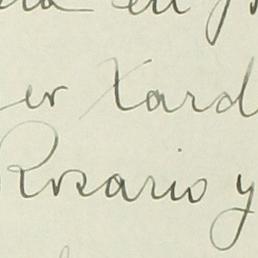 en
er Xard
Rosario y